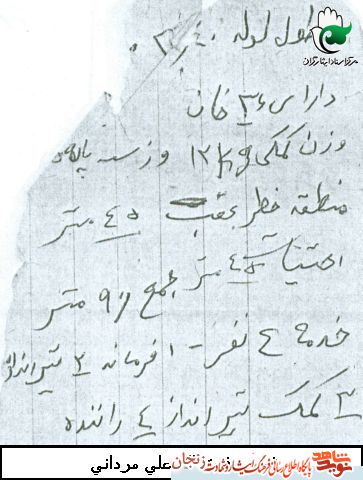 طول لوله
دارای ۳۶ خان
وزن کمکی ۱۳ kg وزن سه پایه
منطقه خطر عقب ۴۵ متر
احتیاط ۴۵ متر جمع ۹۰ متر
خدمه ۴ نفر - ۱ فرمانده ۲ تیرانداز
۳ کمک تیرانداز ۴ راننده
مرکز اسناد ایثارگران
علي مرداني
نوید شاهد زنجان
پایگاه اطلاع رسانی فرهنگ ایثار و شهادت